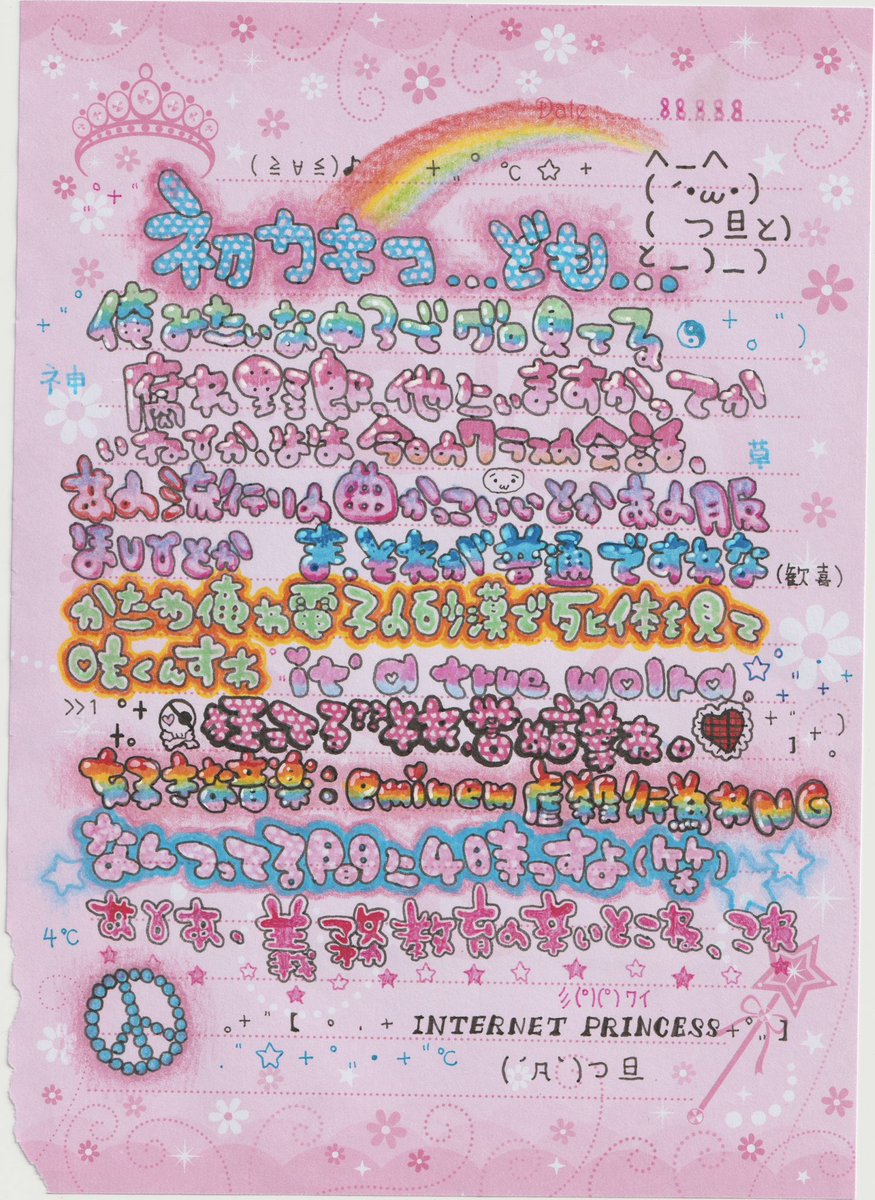 Date 88.8.8.8
(≧∀≦)♪ +"° ℃ ☆ +
ヘ＿ヘ
(´・ω・)
( つ旦と)
と＿)＿)
初カキコ...ども...
俺みたいな中3でグロ見てる
神
腐れ野郎、他に、いますかってか
いねーか、はは 今日のクラスの会話、
草
あの流行りの曲かっこいいとかあの服
ほしいとか ま、それが普通ですわな
(歓喜)
かたや俺わ電子の砂漠で死体を見て
呟くんすわ it'a true wolrd.
>>1 狂ってる?それ、誉め言葉ね。
好きな音楽:eminem 虐殺行為わNG
なんつってる間に4時っすよ(笑)
あーあ、義務教育の辛いとこね、これ
4℃
彡(゚)(゚)ワイ
。+"【 °.+ INTERNET PRINCESS+°"】
."☆+°"・+"℃
(´Д`)つ旦